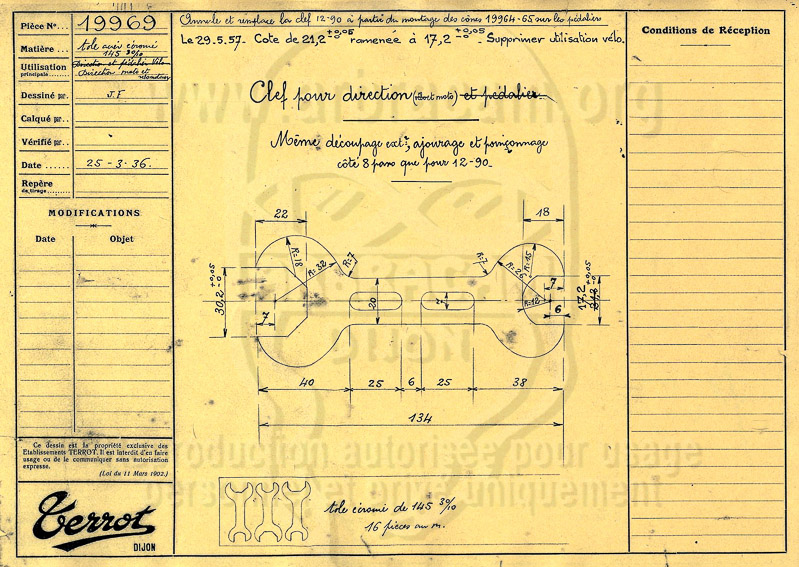 Pièce Nº... 19969
Matière ... tole acier écromé
145 30/10
Utilisation
principale.....
Direction et pédalier Vélo
Direction moto et
Dessiné par. J.F
Calqué par..
Vérifié par..
Date ...... 25-3-36.
Repère
de tirage.......
MODIFICATIONS
Date Objet
Ce dessin est la propriété exclusive des
Etablissements TERROT. Il est interdit d'en faire
usage ou de le communiquer sans autorisation
expresse.
(Loi du 11 Mars 1902.)
Terrot
DIJON
Annule et remplace la clef 12-90 à partir du montage des cônes 19964-65 sur les pédalier
Le 29.5.57. Cote de 21,2 +0,05 -0 ramenée à 17,2 +0,05 -0. Supprimer utilisation vélo.
Clef pour direction (vélo et moto) et pédalier
Même découpage extr, ajourage et poinçonnage
côté 8 pans que pour 12-90.
22
18
R=18
R=32
R=7
R=7
R=26
R=15
R=12
7
7
6
30,2 +0,05 -0
20
7
17,2 +0,05 -0
21,2
40
25
6
25
38
134
tole écromé de 145 30/10
16 pièces au m.
Conditions de Réception
production autorisée
uniquement